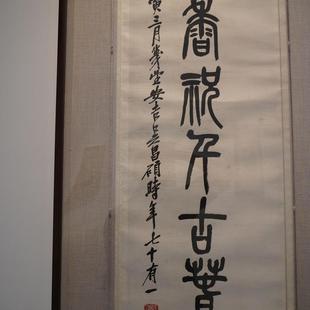 祝千古
寅三月幾望安吉吳昌碩時年七十有一